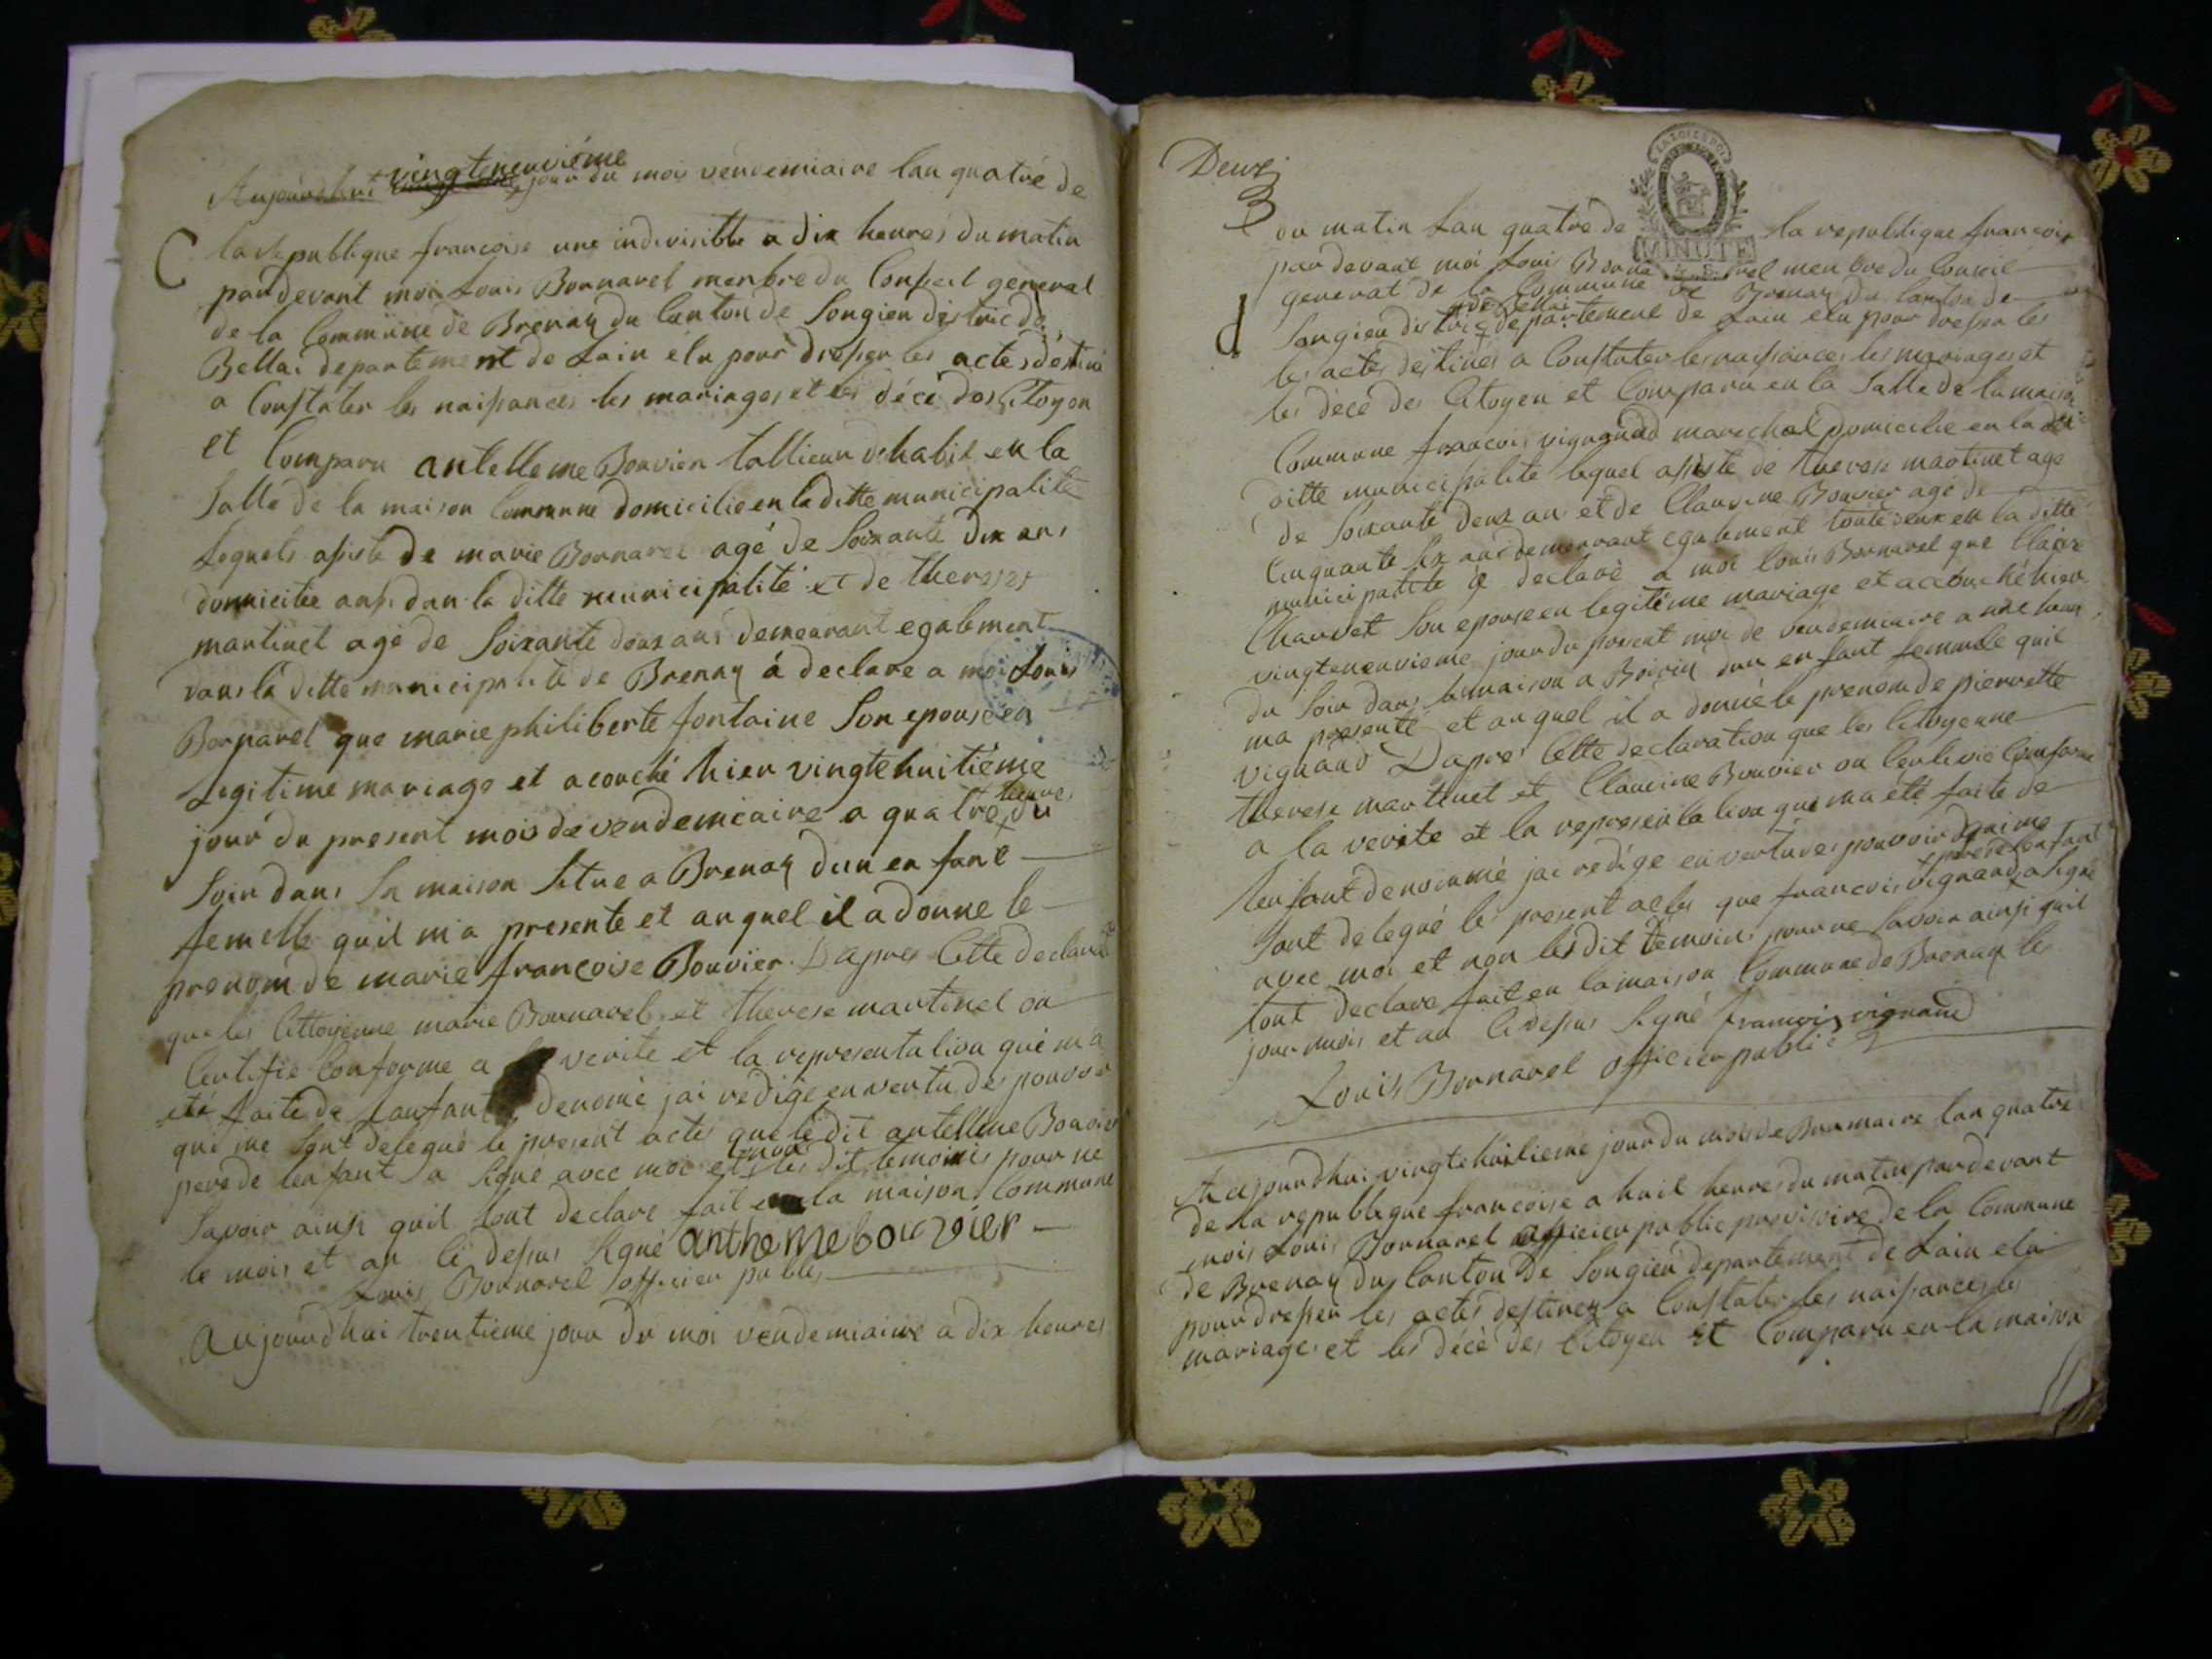 Aujourdhui vingteneuvième jour du mois vendemiaire lan quatre de
C la republique francoise une indivisible a dix heures du matin
pardevant moi Louis Bornarel menbre du Conseil general
de la Commune de Brenaz du Canton de Songieu destric de
Bellai departement de Lain elu pour dresser les actes destiné
a Constater les naissances les mariages et les décé des Citoyen
et Comparu antelleme Bouvier tallieur dhabit en la
Salle de la maison Commune domicilie en la ditte municipalite
Lequels assiste de marie Bornarel agé de Soixante dix ans
domicilie ausi dan la ditte municipalité et de therese
martinet age de Soixante doux ans demeurant egalement
dans la ditte municipalité de Brenaz à declare a moi Louis
Bornarel que marie philiberte fontaine Son epouse en
Legitime mariage et acouché hier vingte huitiéme
jour du present mois de vendemiaire a quatre heures du
Soir dans Sa maison Situe a Brenaz dun enfant
femelle quil ma presente et auquel il a donne le
prenom de marie françoise Bouvier. Dapres Cette declarat
que les Cittoyenne marie Bournarel et therese martinet on
Certifie Conforme a verite et la representation qui ma
eté faite de Lanfant denomé jai redige en vertu des pouvoir
qui me Sont delegué le present actes que ledit antelleme Bouvier
pere de lenfant a Signe avec moi et non les dit temoins pour ne
Savoir ainsi quil Lont declare fait en la maison Commune
le mois et an ci desus Signé antheme bouvier
Louis Bornarel officier public
aujourdhui trentieme jour du moi vendemiaire a dix heures
Deux
3
LA LOI
MINUTE
du matin Lan quatre de la republique francoise
pardevant moi Louis Bornarel menbre du Conseil
general de la Commune de Brenaz du Canton de
Songieu distric de Bellai departement de Lain elu pour dresser les
les actes destines a Constater les naissances les mariages et
les decé des Citoyen et Comparu en la Salle de la maison
Commune francois vignand marechal domicilie en la
ditte municipalite lequel assiste de therese martinet age
de Soixante deux an et de Claudine Bouvier agé de
Cinquante six ans demeurant egalement toute deux en la ditte
municipalite a declaré a moi Louis Bornarel que Claire
Charvet Son epouse en legitime mariage et acouché hier
vingteneuvieme jour du present moi de vendemiaire a une heure
du Soir dans la maison a Boirin dun enfant femmele quil
ma presenté et auquel il a donné le prenom de pierrette
vignand Dapres Cette declaration que les Citoyenne
therese martinet et Claudine Bouvier on Certifié Conforme
a la verite et la representation qui ma été faite de
lenfant denommé jai redigé en vertu des pouvoir qui me
Sont delegué le present actes que francois vignand pere de lenfant a Signé
avec moi et non les dit temoins pour ne Savoir ainsi quil
Lont declare fait en la maison Commune de Brenaz les
jour mois et an Cidesus Signé francois vignand
Louis Bornarel officier public
Aujourdhui vingtehuitieme jour du mois de Brumaire lan quatre
de la republique francoise a huit heures du matin pardevant
moi Louis Bornarel officier public provisoire de la Commune
de Brenaz du Canton de Songieu departement de Lain elu
pour dresser les actes destinez a Constater les naissances les
mariages et les décé des Citoyen et Comparu en la maison